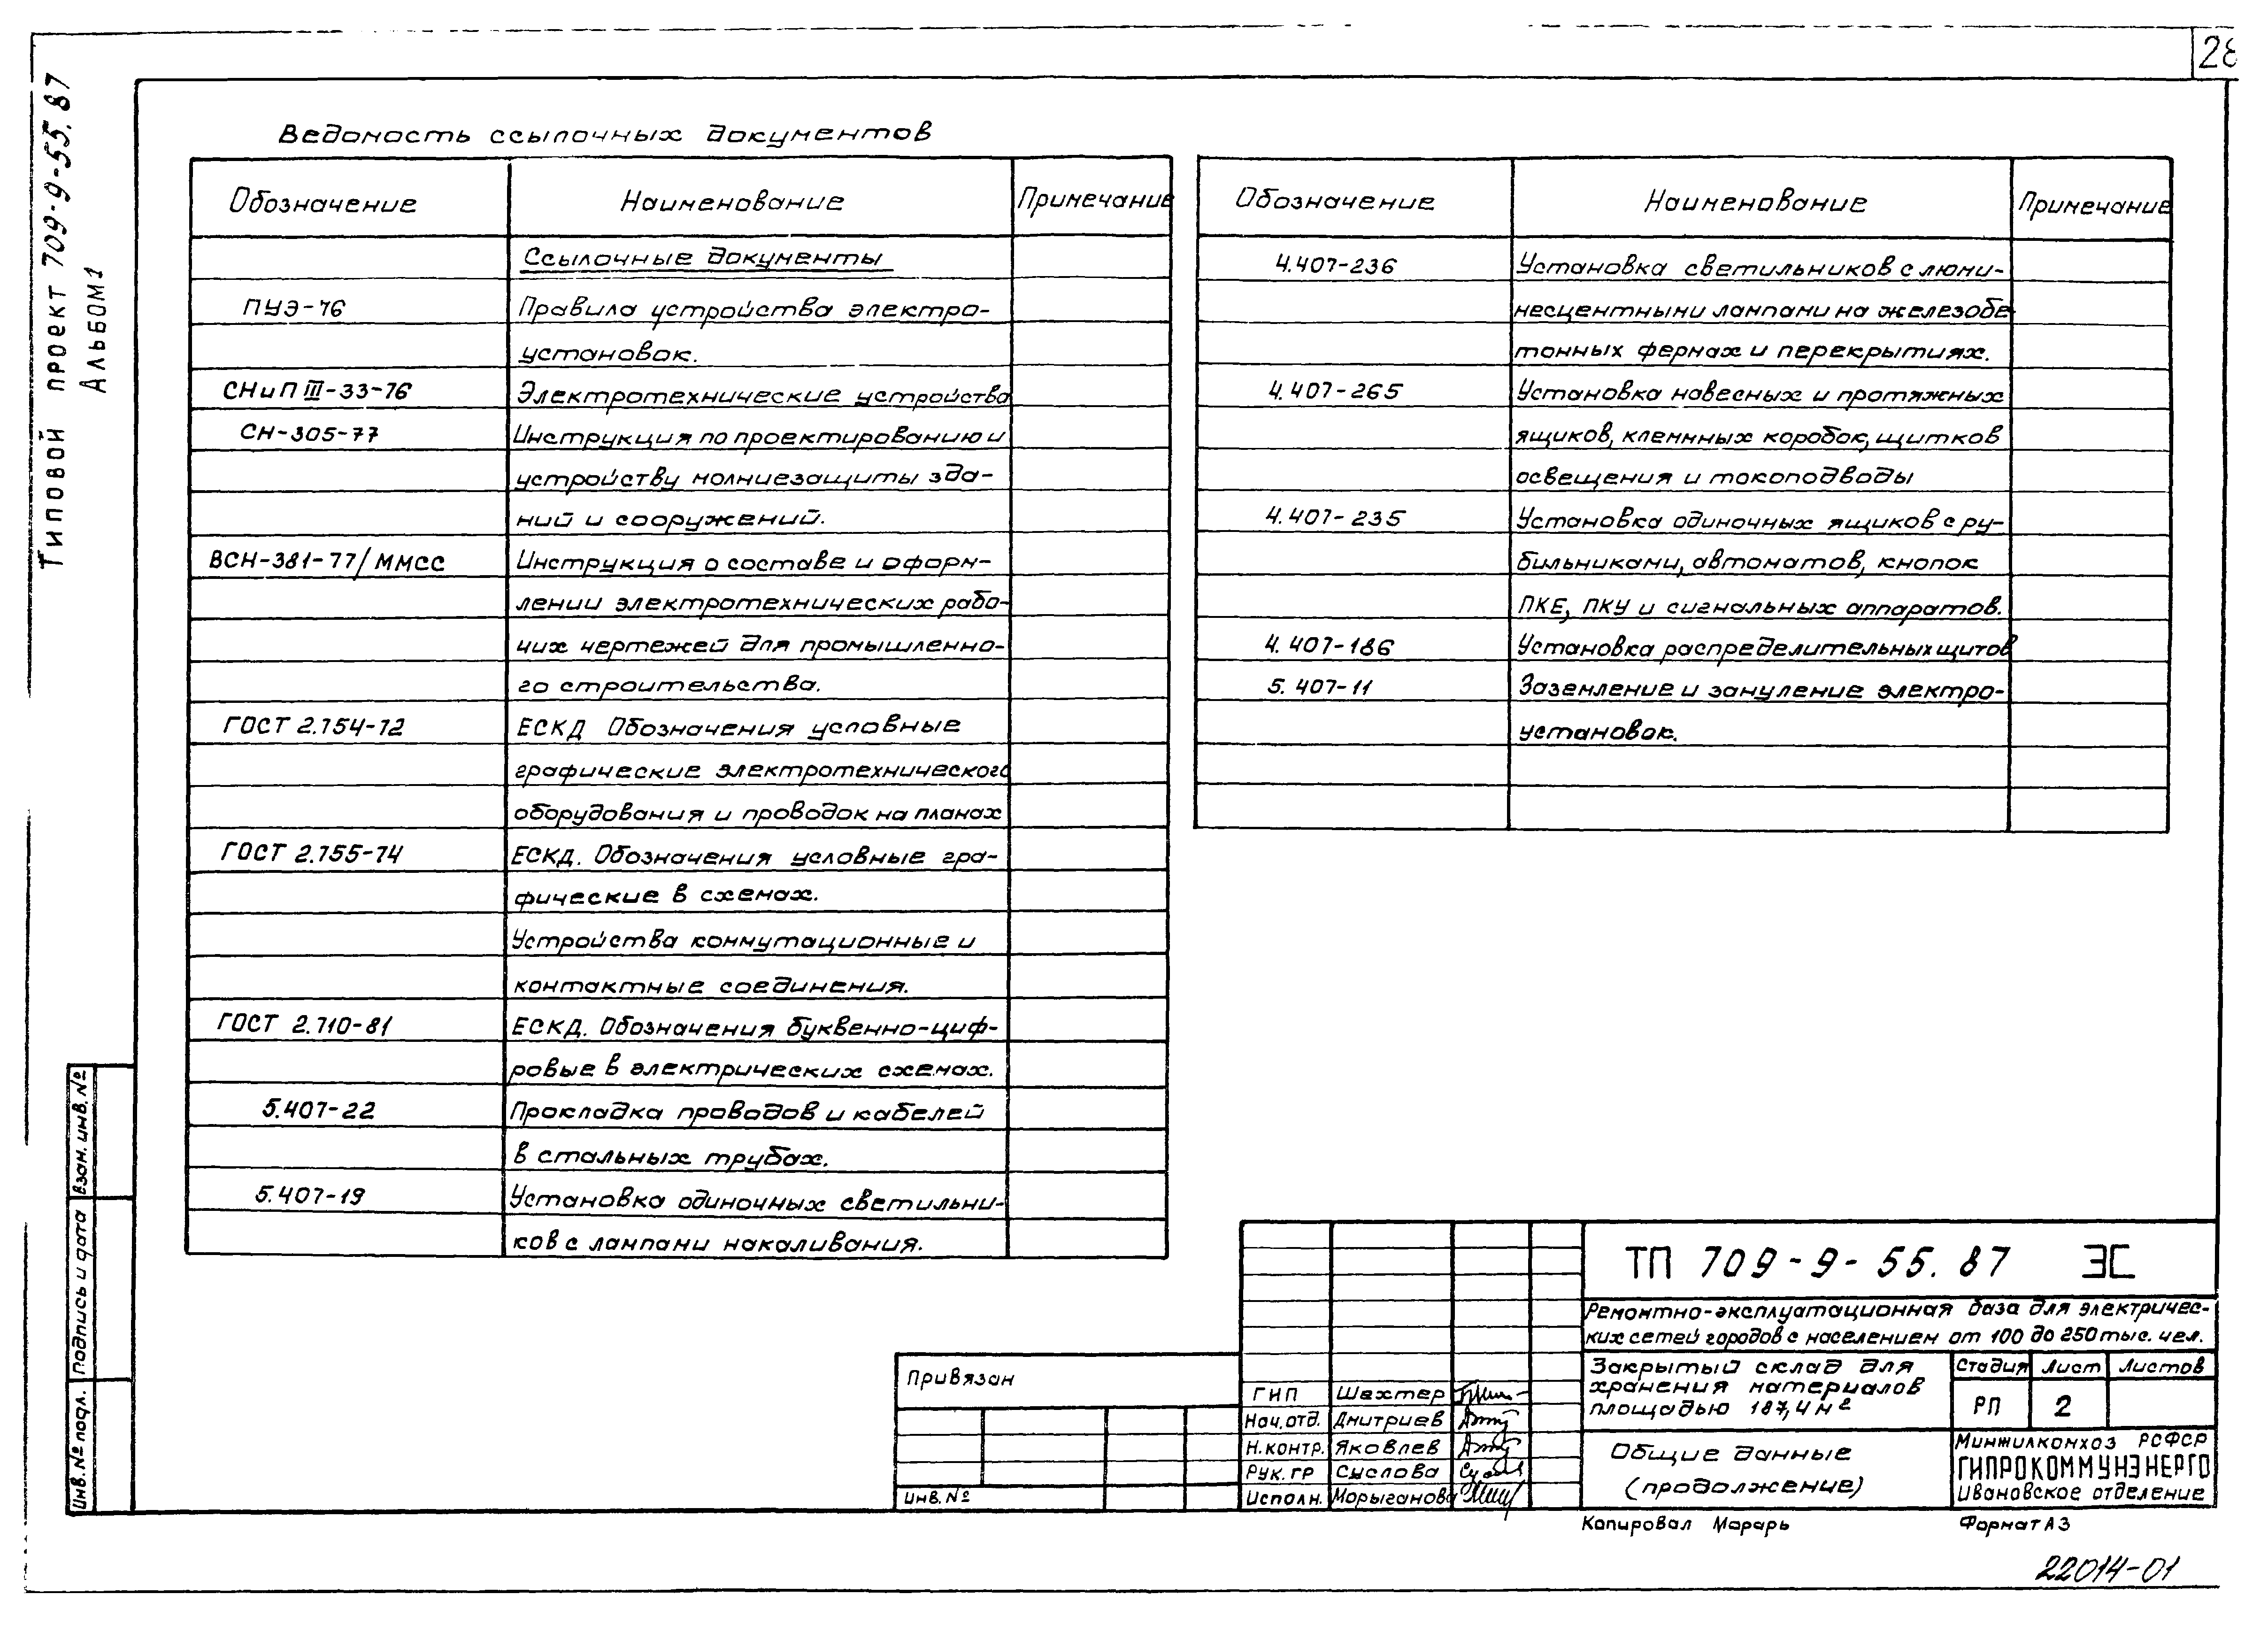 28
Типовой проект 709-9-55.87
Альбом 1
Ведомость ссылочных документов
Обозначение Наименование Примечание
Ссылочные документы
ПУЭ-76 Правила устройства электро-
установок.
СНиП III-33-76 Электротехнические устройства
СН-305-77 Инструкция по проектированию и
устройству молниезащиты зда-
ний и сооружений.
ВСН-381-77/ММСС Инструкция о составе и оформ-
лении электротехнических рабо-
чих чертежей для промышленно-
го строительства.
ГОСТ 2.754-72 ЕСКД Обозначения условные
графические электротехнического
оборудования и проводок на планах
ГОСТ 2.755-74 ЕСКД. Обозначения условные гра-
фические в схемах.
Устройства коммутационные и
контактные соединения.
ГОСТ 2.710-81 ЕСКД. Обозначения буквенно-циф-
ровые в электрических схемах.
5.407-22 Прокладка проводов и кабелей
в стальных трубах.
5.407-19 Установка одиночных светильни-
ков с лампами накаливания.
Обозначение Наименование Примечание
4.407-236 Установка светильников с люми-
несцентными лампами на железобе
тонных фермах и перекрытиях.
4.407-265 Установка навесных и протяжных
ящиков, клеммных коробок, щитков
освещения и токоподводы
4.407-235 Установка одиночных ящиков с ру-
бильниками, автоматов, кнопок
ПКЕ, ПКУ и сигнальных аппаратов.
4.407-186 Установка распределительных щитов
5.407-11 Заземление и зануление электро-
установок.
Взам. инв. №
Подпись и дата
Инв. № подл.
Привязан
Инв. №
ГИП Шахтер
Нач. отд. Дмитриев
Н. контр. Яковлев
Рук. гр Суслова
Исполн. Морыганова
ТП 709-9-55.87 ЭС
Ремонтно-эксплуатационная база для электричес-
ких сетей городов с населением от 100 до 250 тыс. чел.
Закрытый склад для
хранения материалов
площадью 187,4 м²
Стадия Лист Листов
РП 2
Общие данные
(продолжение)
Минжилкомхоз РСФСР
ГИПРОКОММУНЭНЕРГО
Ивановское отделение
Копировал Марарь Формат А3
22014-01